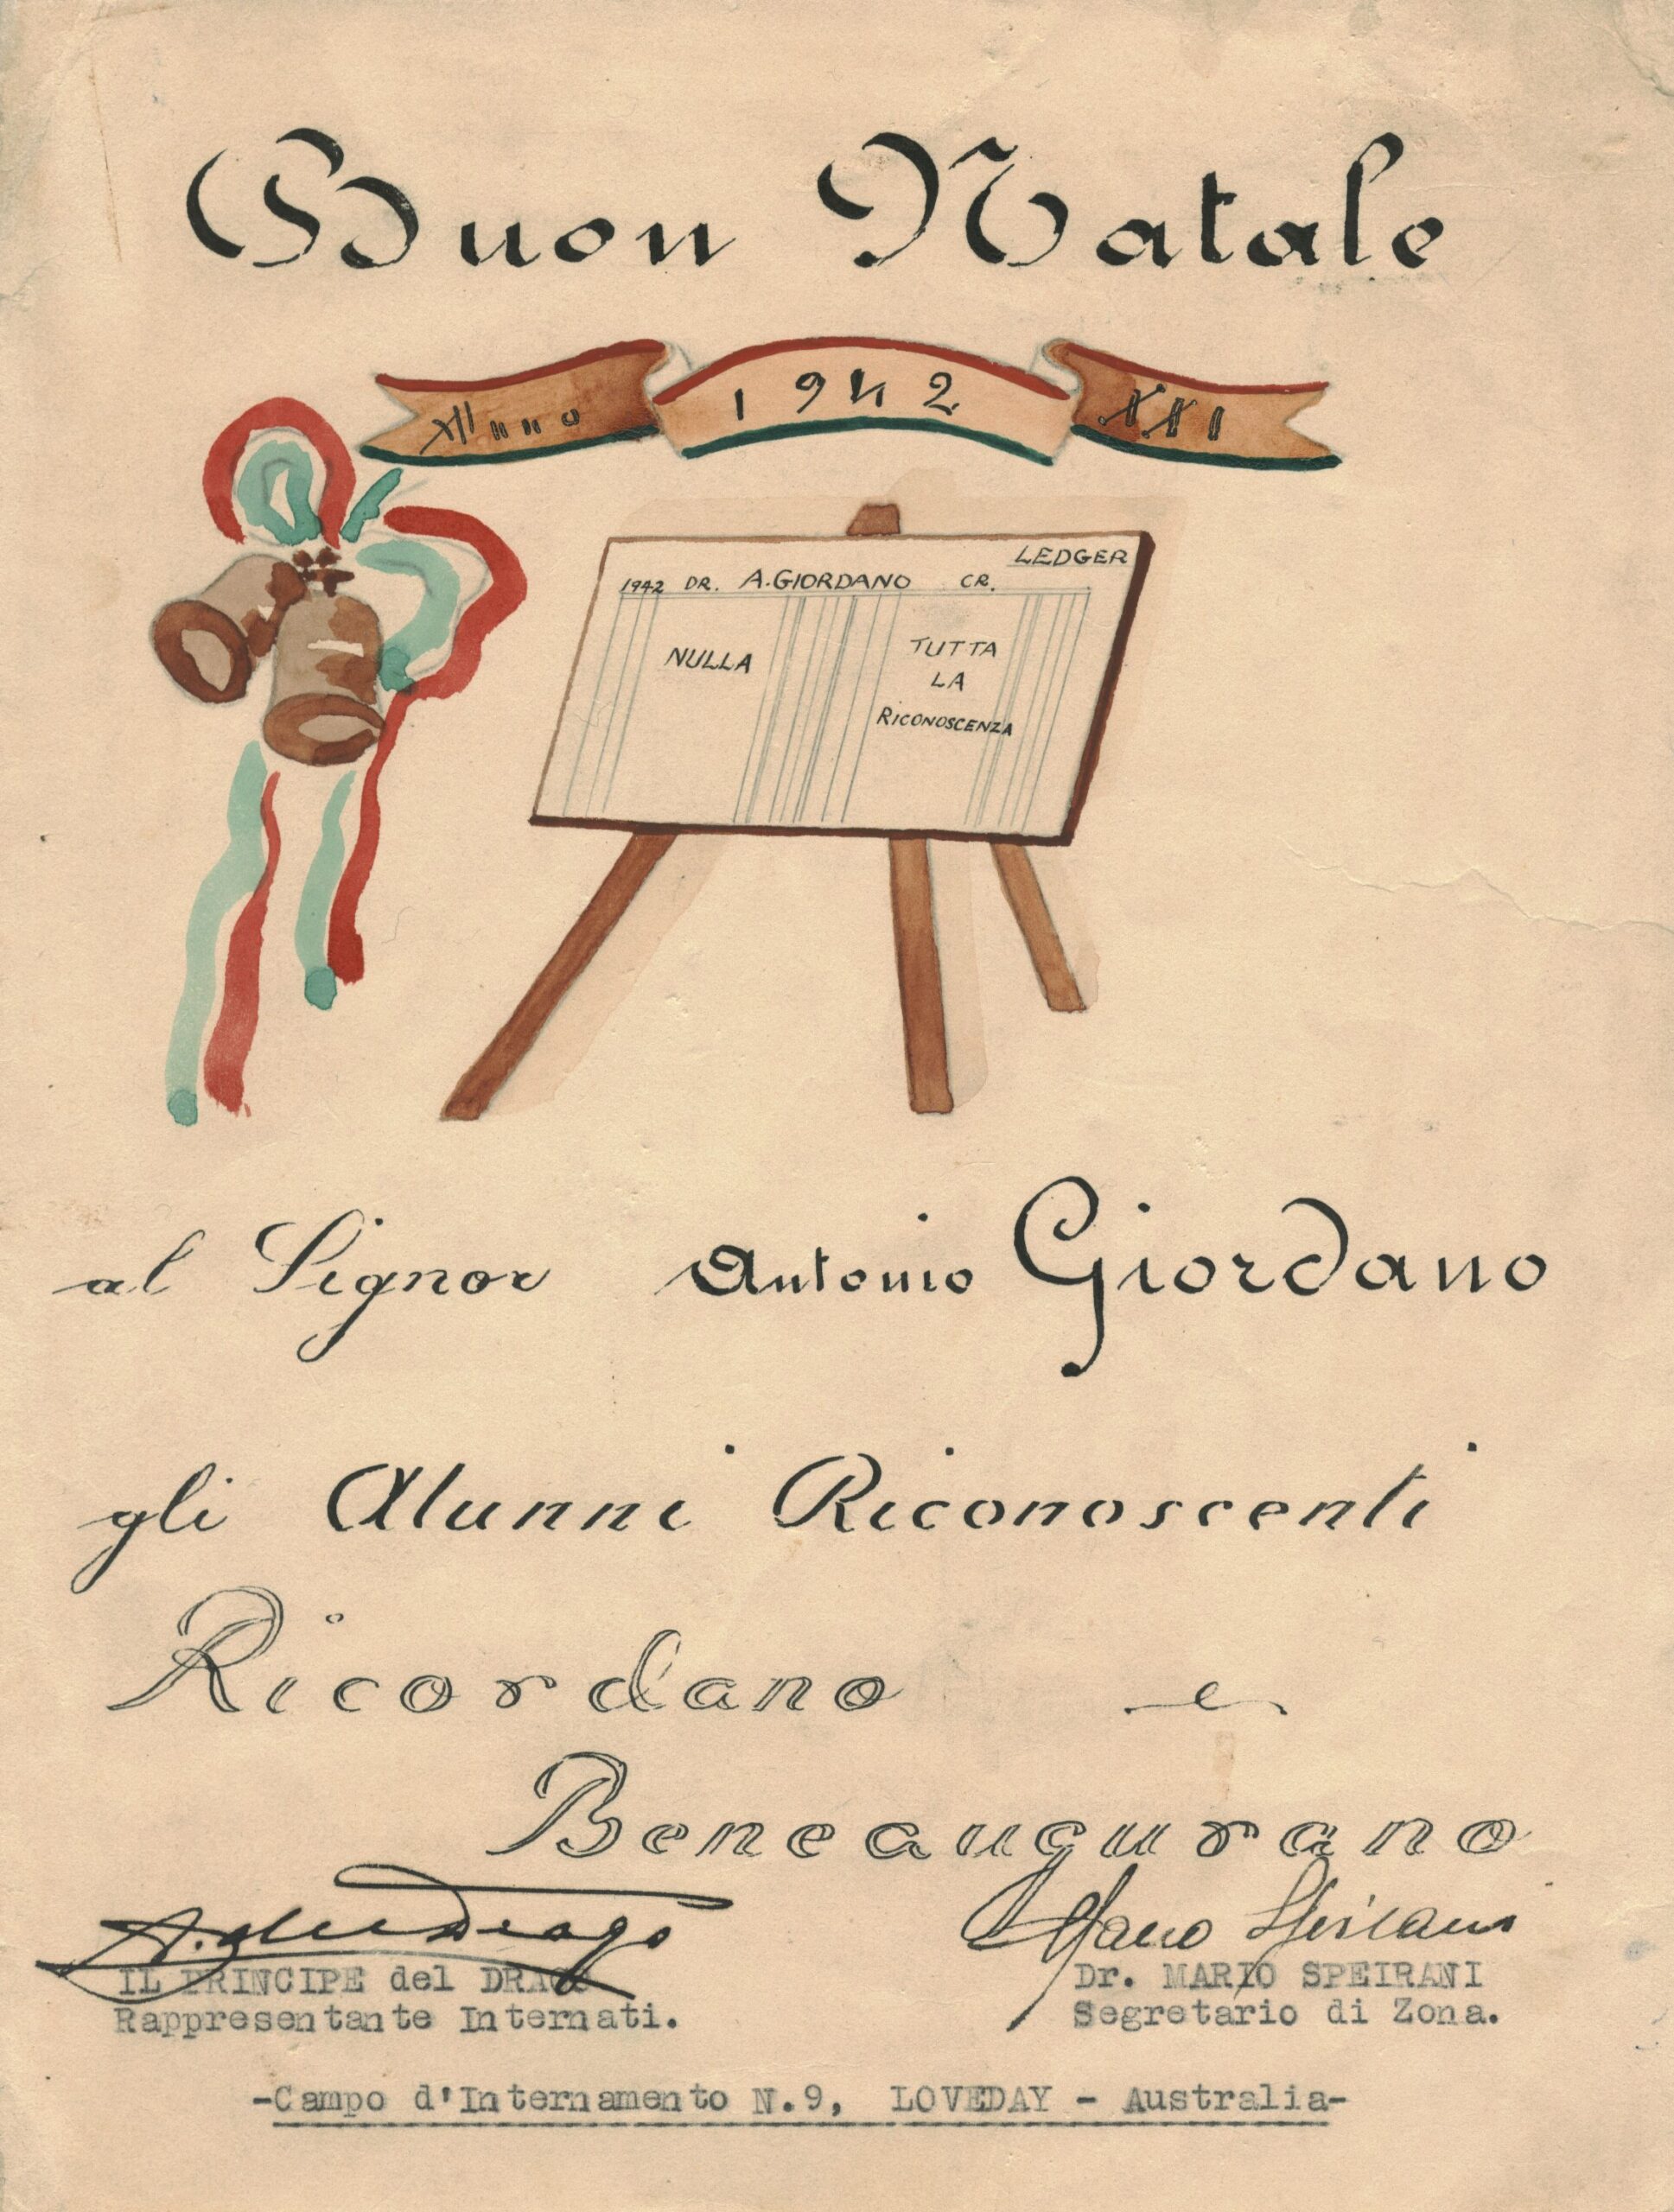 Buon Natale
Anno 1942 XXI
LEDGER
1942 DR. A. GIORDANO CR.
NULLA
TUTTA
LA
RICONOSCENZA
al Signor Antonio Giordano
gli Alunni Riconoscenti
Ricordano e
Beneaugurano
A. del Drago
Mario Speirani
IL PRINCIPE del DRAGO
Dr. MARIO SPEIRANI
Rappresentante Internati.
Segretario di Zona.
-Campo d'Internamento N.9, LOVEDAY - Australia-